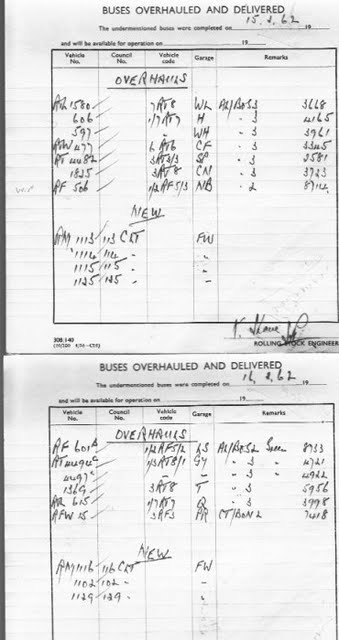 BUSES OVERHAULED AND DELIVERED
The undermentioned buses were completed on 15.2.62 19
and will be available for operation on 19
Vehicle No. Council No. Vehicle code Garage Remarks
OVERHAULS
1580 7RT8 WL AR/BOS3 3668
606 1/7RT7 H " 3 4165
597 " WH " 3 3961
RTW 477 6RT6 CF " 3 3345
RT 4482 3RT3/3 SP " 3 3581
1825 3RT8 CN " 3 3723
RF 506 1/2RF5/3 NB " 2 8714
NEW
RM 1113 113 CLT FW
1114 114 " "
1115 115 " "
1125 125 " "
308/140
ROLLING STOCK ENGINEER
BUSES OVERHAULED AND DELIVERED
The undermentioned buses were completed on 16.2.62 19
and will be available for operation on 19
Vehicle No. Council No. Vehicle code Garage Remarks
OVERHAULS
RF 601 1/2RF5/2 LS AR/BOS2 8733
RT 4494 1/3RT8/1 GY " 3 4721
4497 " " " 3 4922
1369 3RT8 T " 3 5956
615 1/7RT7 Q " 3 3998
RFW 15 3RF3 RR CT/BON2 7418
NEW
RM 1116 116 CLT FW
1102 102 " "
1129 129 " "